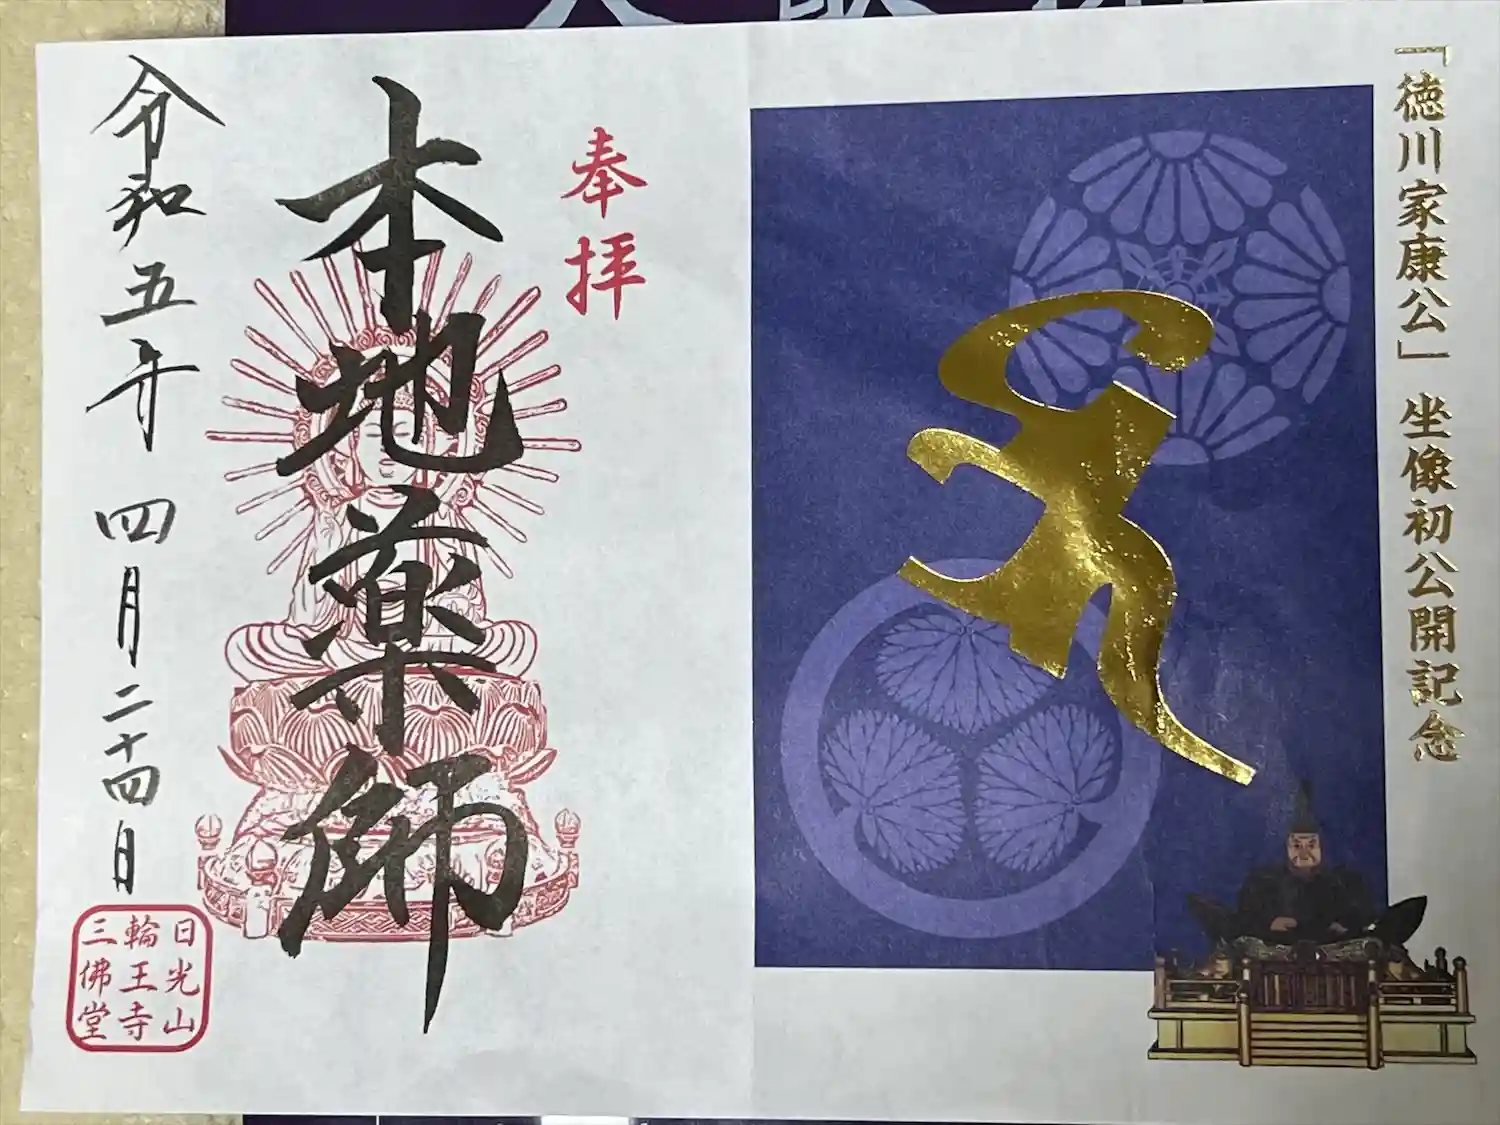 「徳川家康公」坐像初公開記念
奉拝
本地薬師
令和五年 四月二十四日
日光山
輪王寺
三佛堂